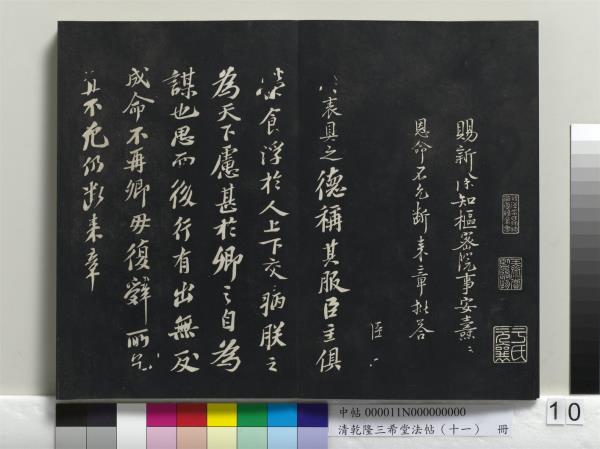 賜新除知樞密院事安燾三
恩命不允斷來章批答
臣
省表具之德稱其服臣主俱
榮食浮於人上下交病朕之
為天下慮甚於卿之自為
謀也思而後行有出無反
成命不再卿毋復辭所乞
宜不允仍斷來章
中帖 000011N000000000
清乾隆三希堂法帖（十一） 冊
10